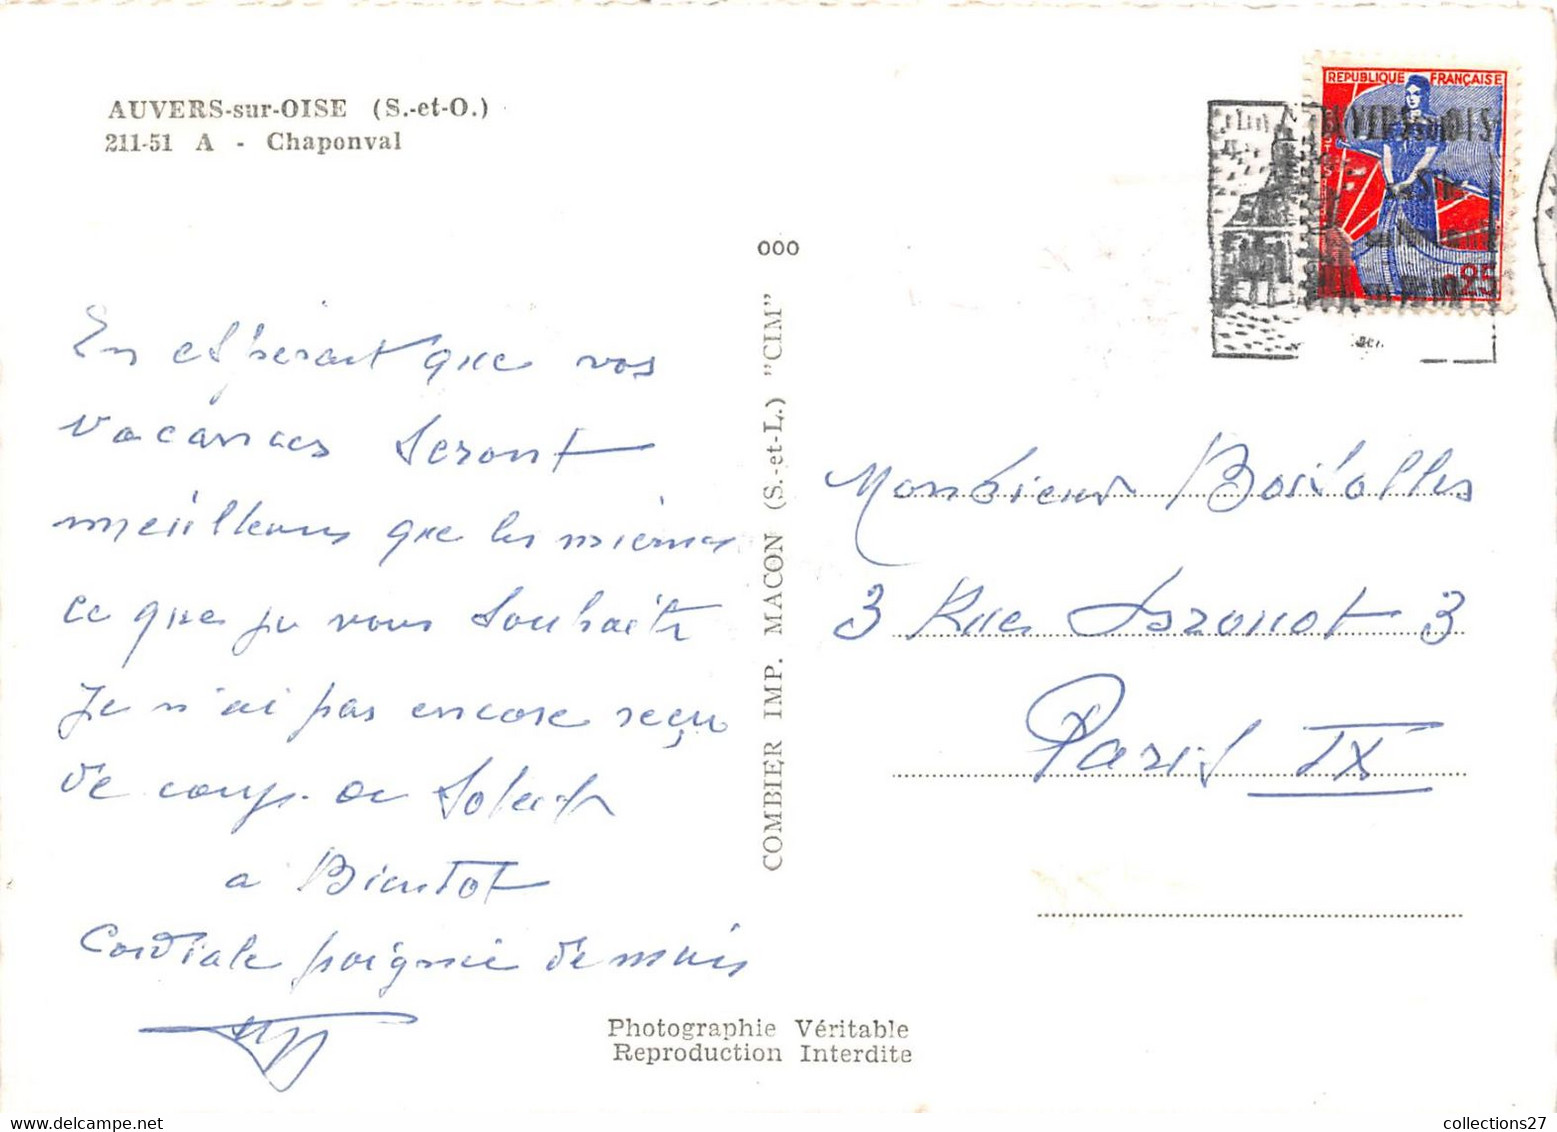 AUVERS-sur-OISE (S.-et-O.)
211-51 A - Chaponval
REPUBLIQUE FRANÇAISE
0,25
000
COMBIER IMP. MACON (S.-et-L.) "CIM"
En espérant que vos
vacances seront
meilleures que les miennes
ce que je vous souhaite
Je n'ai pas encore reçu
de coups de Soleil
a Bientot
Cordiale poignée de mains
Monsieur
3 Rue 3
Paris IX
Photographie Véritable
Reproduction Interdite
collections27